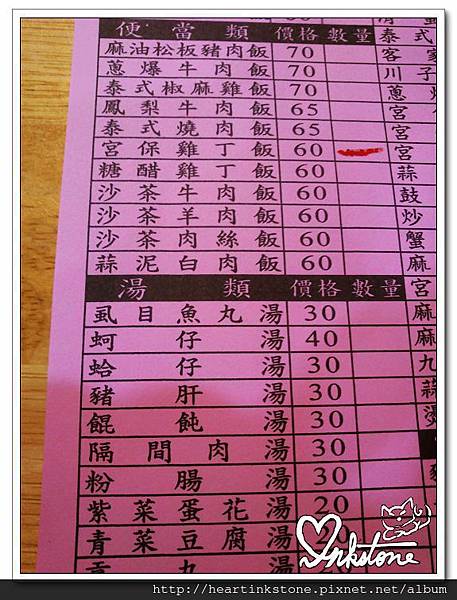 便當類 價格 數量
麻油松板豬肉飯 70
蔥爆牛肉飯 70
泰式椒麻雞飯 70
鳳梨牛肉飯 65
泰式燒肉飯 65
宮保雞丁飯 60
糖醋雞丁飯 60
沙茶牛肉飯 60
沙茶羊肉飯 60
沙茶肉絲飯 60
蒜泥白肉飯 60
湯類 價格 數量
虱目魚丸湯 30
蚵仔湯 40
蛤仔湯 30
豬肝湯 30
餛飩湯 30
隔間肉湯 30
粉腸湯 30
紫菜蛋花湯 20
青菜豆腐湯
泰式
客家
川子
蔥
宮
宮
宮
蒜
鼓
炒
蟹
麻
宮
麻
麻
九
蒜
Inkstone
http://heartinkstone.pixnet.net/album